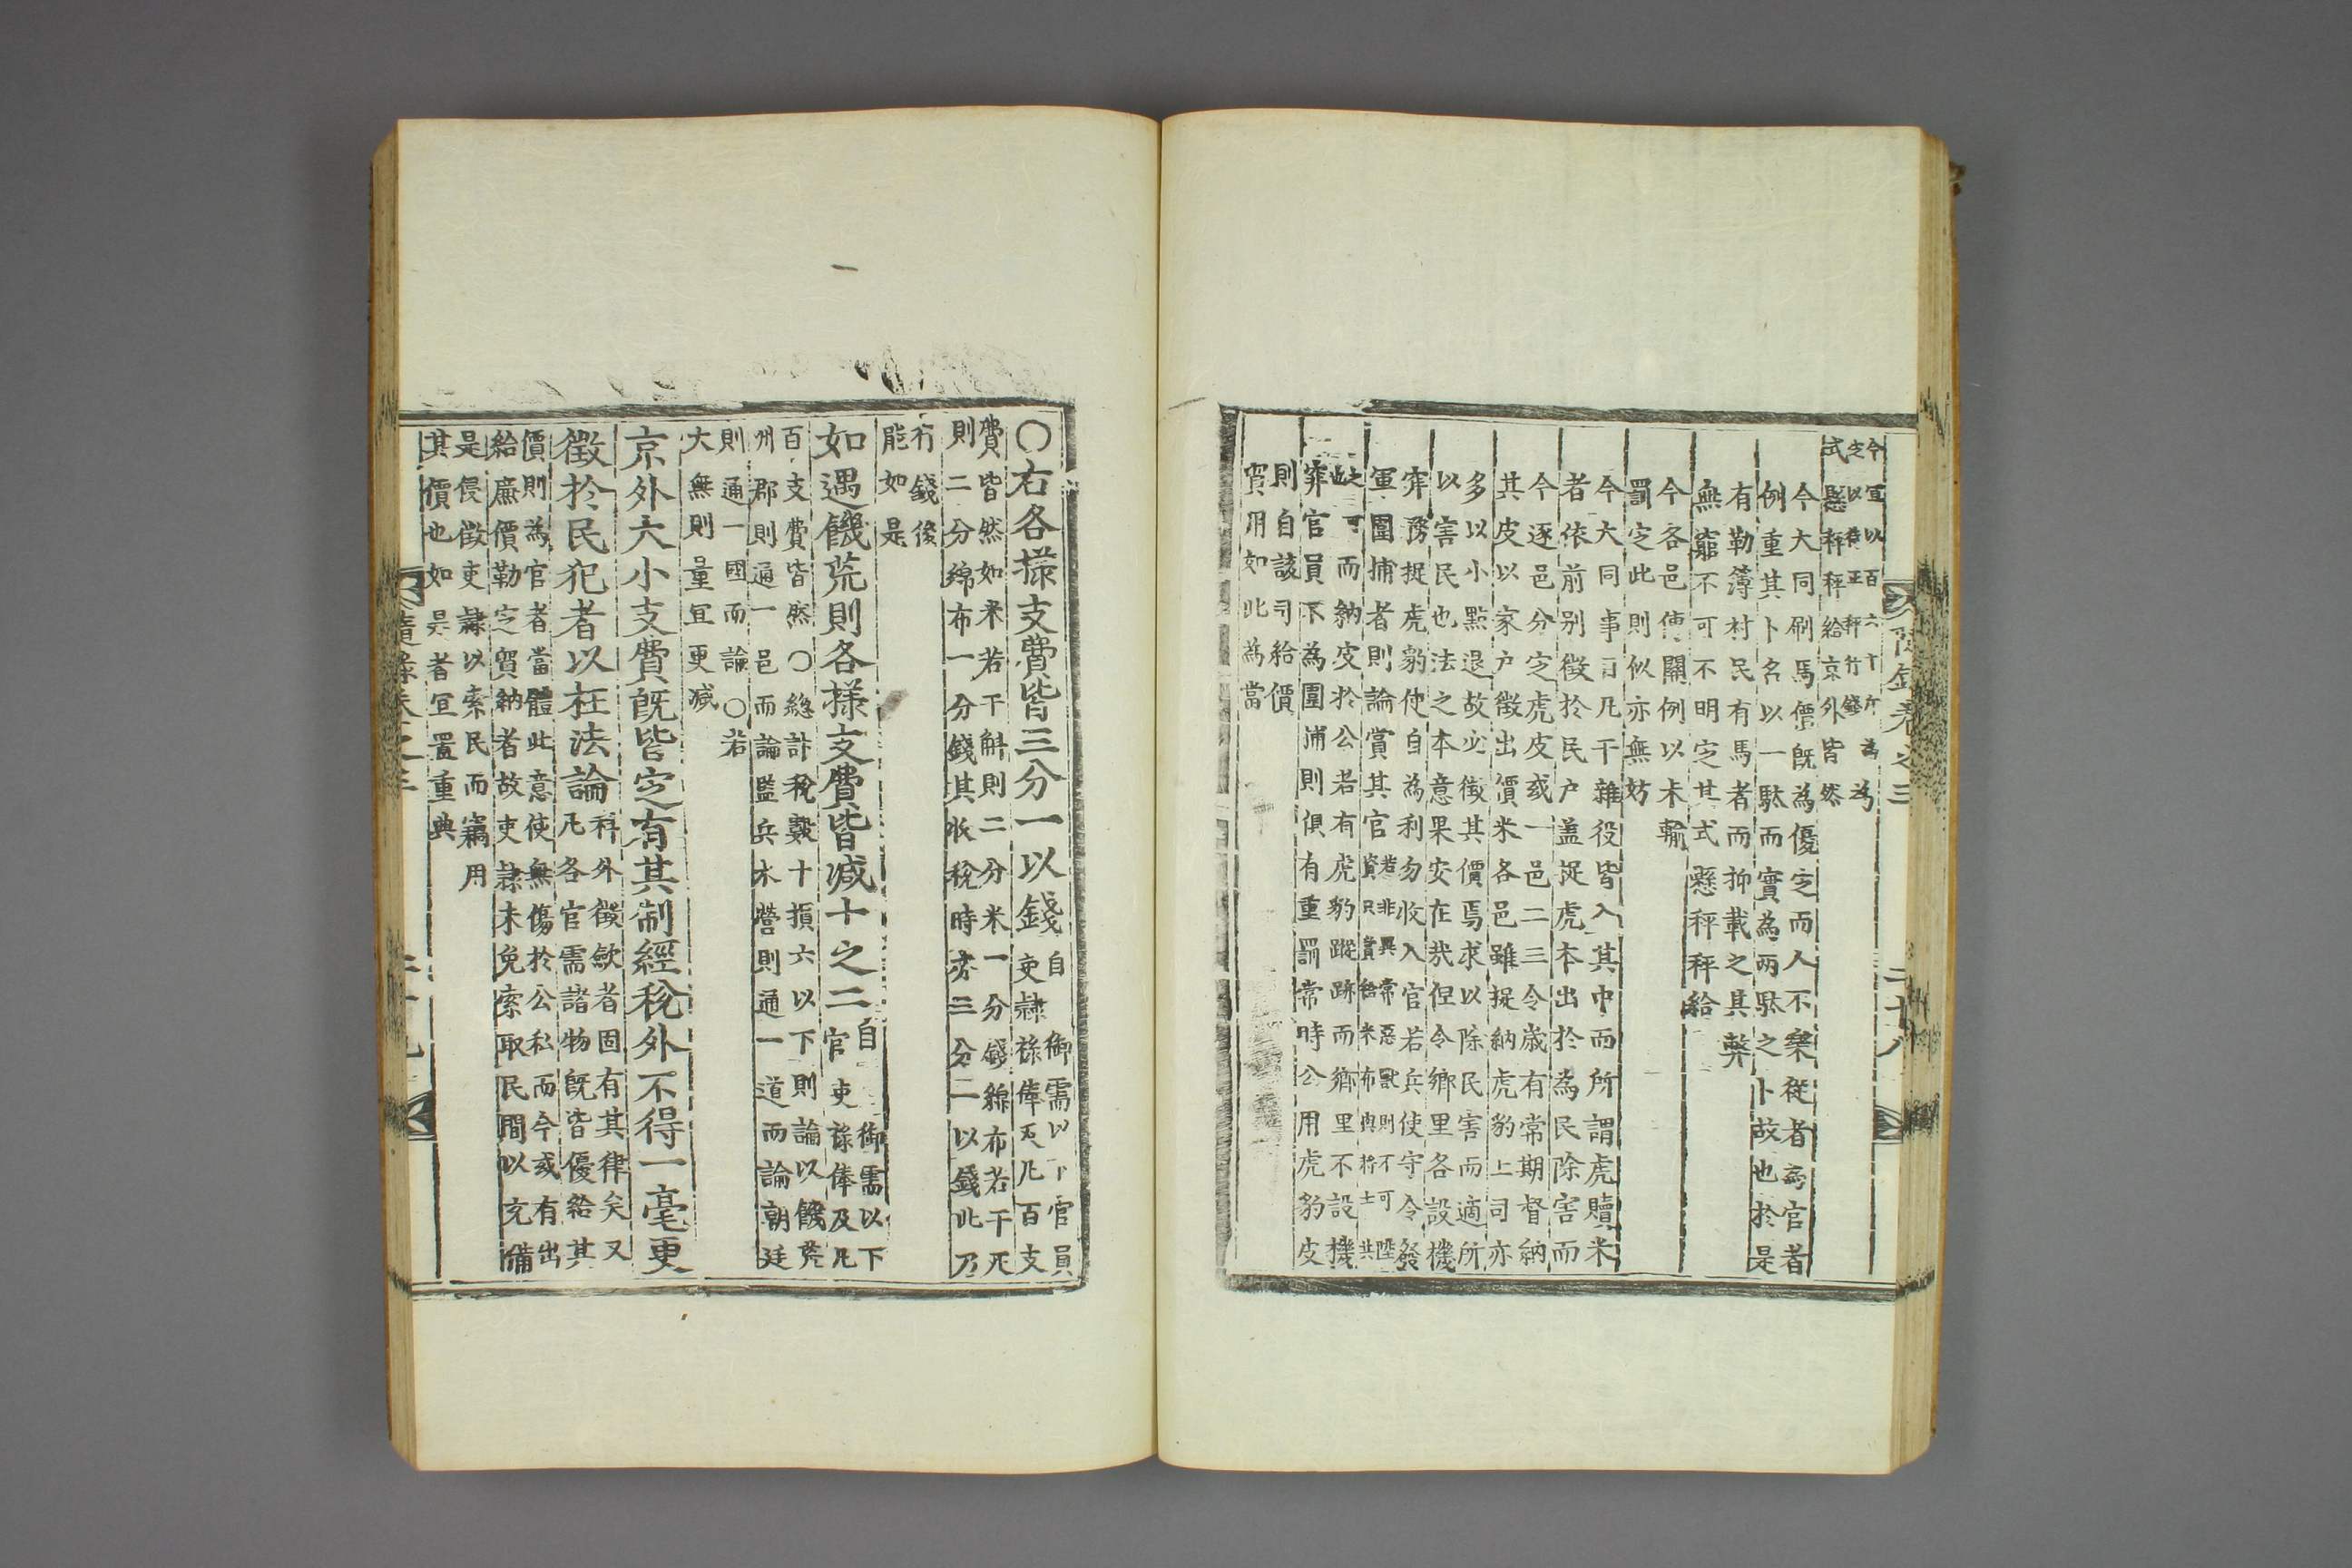 隨錄卷之三 二十八
今宜以百六十斤為
式懸秤秤給京外皆然
今大同刷馬價既為優定而人不樂從者為官者
例重其卜名以一駄而實為兩駄之卜故也於是
有勒簿村民有馬者而抑載之其弊
無窮不可不明定其式懸秤秤給
今各邑使關例以未輸
罰定此則似亦無妨
今大同事目凡干雜役皆入其中而所謂虎贖米
者依前別徵於民戶盖捉虎本出於為民除害而
今逐邑分定虎皮或一邑二三令歲有常期督納
其皮以家戶徵出價米各邑雖捉納虎豹上司亦
多以小點退故必徵其價焉求以除民害而適所
以害民也法之本意果安在哉但令鄉里各設機
穽務捉虎豹使自為利勿收入官若兵使守令發
軍圍捕者則論賞其官若非異常惡獸則不可陞
資只賞給米布與將士共
之可也而納皮於公若有虎豹蹤跡而鄉里不設機
穽官員不為圍浦則俱有重罰常時公用虎豹皮
則自該司給價
貿用如此為當
〇右各㨾支費皆三分一以錢自御需以下官員
吏隷祿俸及凡百支
費皆然如米若干斛則二分米一分錢綿布若干疋
則二分綿布一分錢其收稅時亦三分二以錢此乃
行錢後
能如是
如遇饑荒則各㨾支費皆減十之二自御需以下
官吏祿俸及凡
百支費皆然〇緫計稅穀十損六以下則論以饑荒
州郡則通一邑而論監兵水營則通一道而論朝廷
則通一國而論〇若
大無則量宜更減
京外大小支費旣皆定有其制經稅外不得一毫更
徵於民犯者以枉法論科外徵歛者固有其律矣又
凡各官需諸物旣皆優給其
價則為官者當體此意使無傷於公私而今或有出
給廉價勒定貿納者故吏隷未免索取民間以充備
是侵徵吏隷以索民而竊用
其價也如是者宜置重典